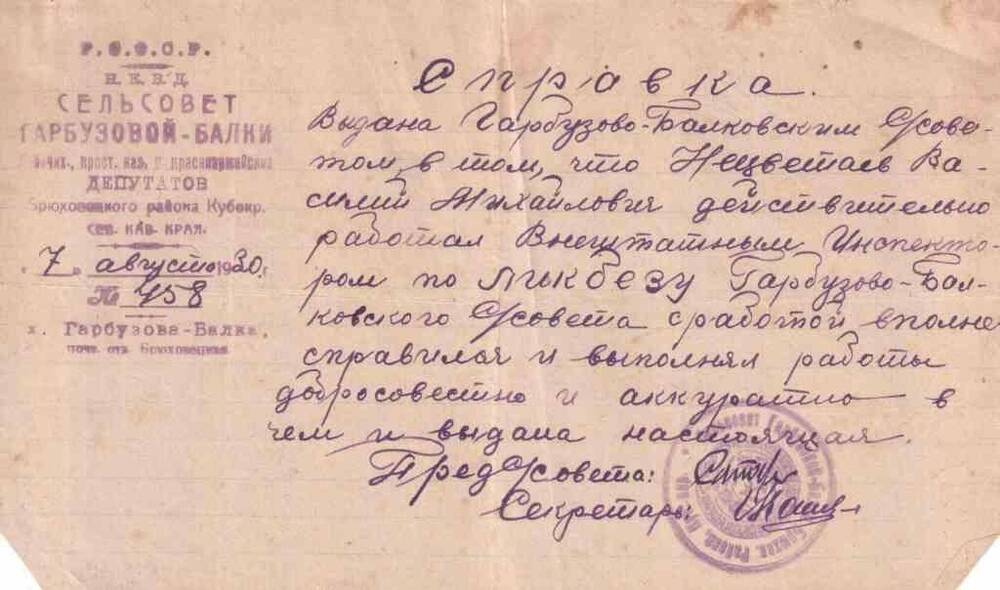 Р.С.Ф.С.Р.
Н.К.В.Д.
СЕЛЬСОВЕТ
ГАРБУЗОВОЙ-БАЛКИ
крест. каз. и красноармейских
ДЕПУТАТОВ
Брюховецкого района Кубокр.
СЕВ. КАВ. КРАЯ.
7 августа 1930 г.
№ 458
х. Гарбузова-Балка,
почт. отд. Брюховецкая
Справка.
Выдана Гарбузово-Балковским С/сове-
том, в том, что Нецветаев Ва-
силий Михайлович действительно
работал Внештатным Инспекто-
ром по ликбезу Гарбузово-Бал-
ковского С/совета с работой вполне
справился и выполнял работы
добросовестно и аккуратно в
чем и выдана настоящая.
Пред С/совета:
Секретарь: